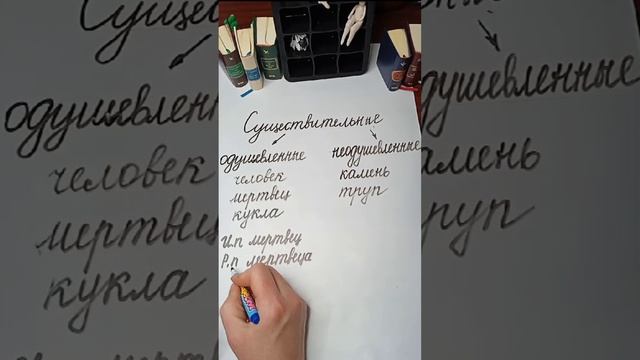 Существительные
одушевленные неодушевленные
человек камень
мертвец труп
кукла
И.п мертвец
Р.п мертвеца